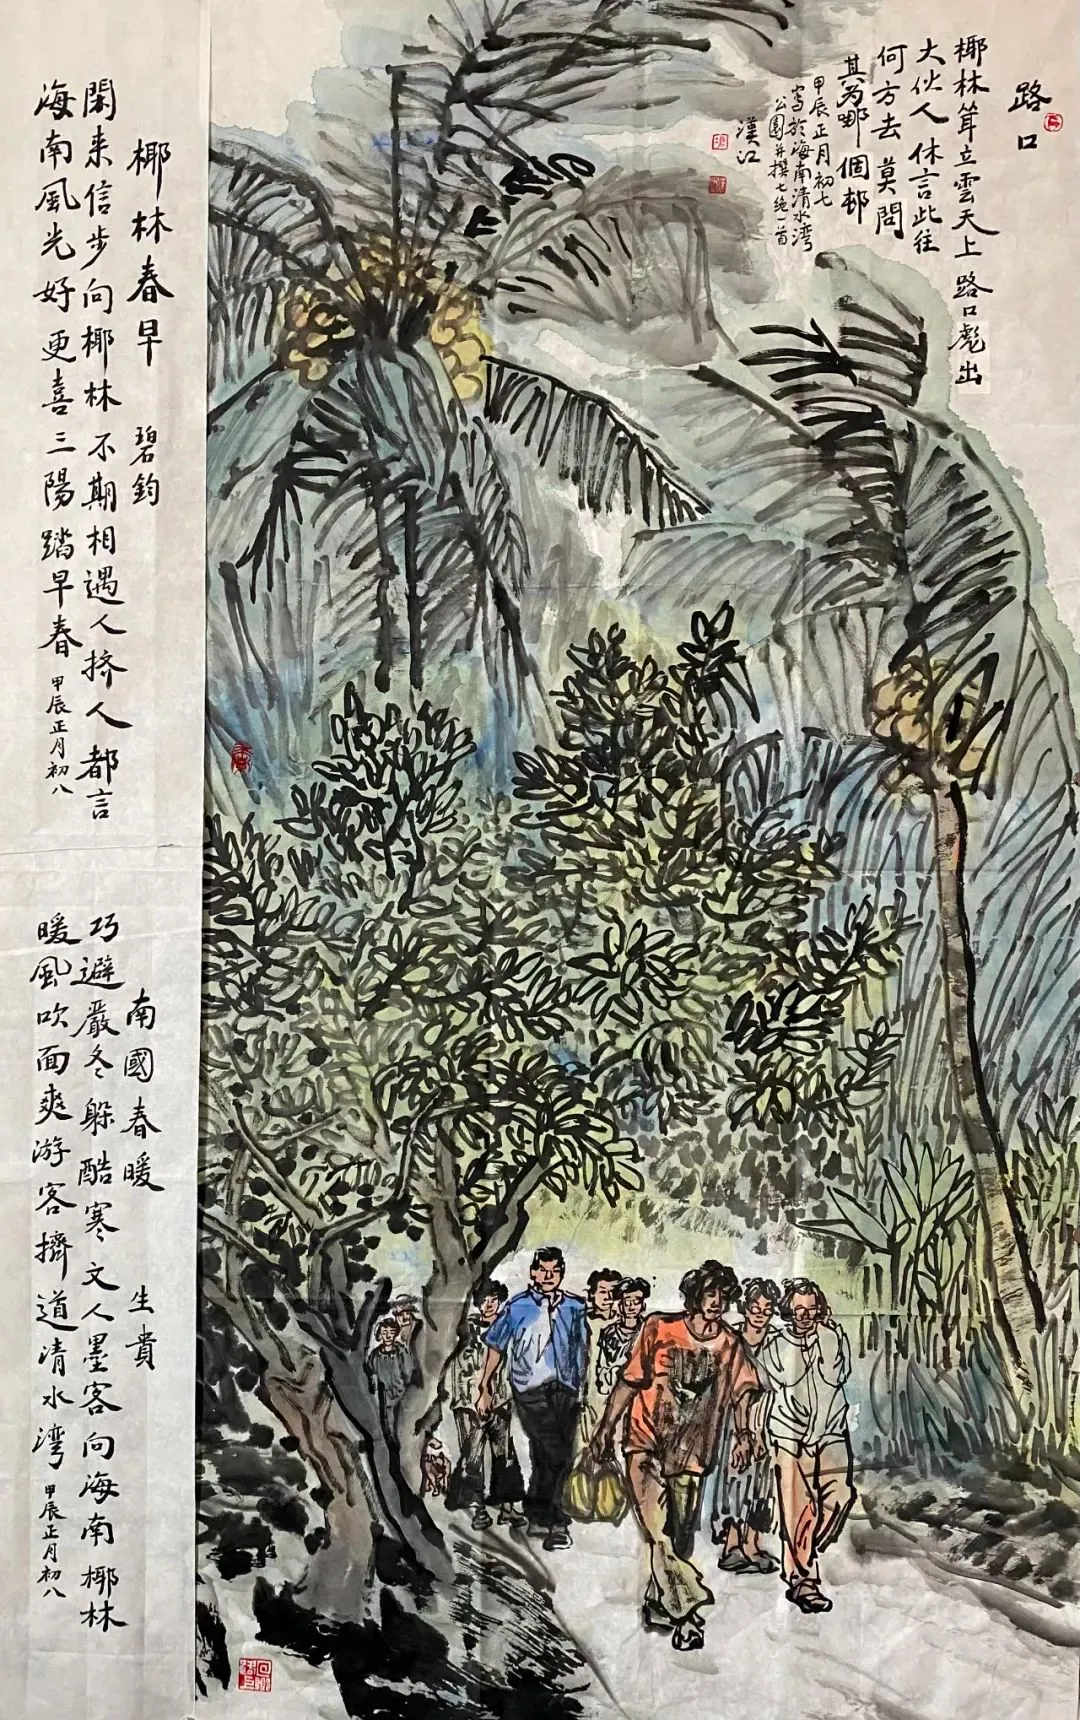 路口
椰林耸立雲天上 路口彪出
大伙人 休言此往
何方去 莫問
其为哪個邨
甲辰正月初七
寫於海南清水湾
公園并撰七绝一首
漢江
椰林春早 碧鈞
閑来信步向椰林 不期相遇人挤人 都言
海南風光好 更喜三陽踏早春 甲辰正月初八
南國春暖 生貴
巧避嚴冬躲酷寒 文人墨客向海南 椰林
暖風吹面爽 游客擠道清水湾 甲辰正月初八